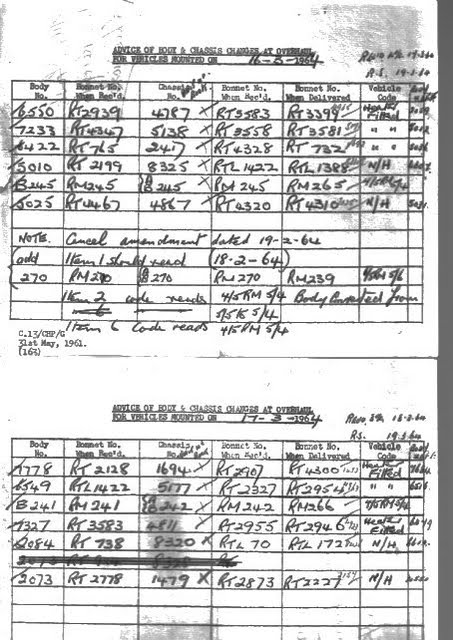 ADVICE OF BODY & CHASSIS CHANGES AT OVERHAUL
FOR VEHICLES MOUNTED ON 16-3-1964
R.S. 19.3.64
Body No. Bonnet No. When Rec'd. Chassis No. Bonnet No. When Rec'd. Bonnet No. When Delivered Vehicle Code
6550 RT2939 4787 X RT3583 RT3399 Heater Fitted
7233 RT4347 5138 X RT3558 RT3581 " "
8422 RT765 2417 X RT4328 RT732 " "
5010 RT2199 8325 X RTL1422 RTL1388 N/H
B245 RM245 B245 X RM245 RM265 4/5RM5/4
5025 RT4467 4867 X RT4320 RT4310 N/H
NOTE. Cancel amendment dated 19-2-64
(add Item 1 should read (18-2-64)
270 RM270 B270 RM270 RM239
Item 2 code reads 4/5RM 5/4 Body Converted from
Item 6 Code reads 4/5RM 5/4
C.13/CHF/G
31st May, 1961.
(163)
ADVICE OF BODY & CHASSIS CHANGES AT OVERHAUL
FOR VEHICLES MOUNTED ON 17-3-1964
R.S. 19.3.64
Body No. Bonnet No. When Rec'd. Chassis No. Bonnet No. When Rec'd. Bonnet No. When Delivered Vehicle Code
7778 RT2128 1694 X RT2907 RT4300 Heater Fitted
6549 RTL1422 5177 X RT2327 RT2954 " "
B241 RM241 B242 X RM242 RM266
7327 RT3583 4811 X RT2955 RT2946 Heater Fitted
2084 RT738 8320 X RTL70 RTL172 N/H
2073 RT2778 1479 X RT2873 RT2227 N/H